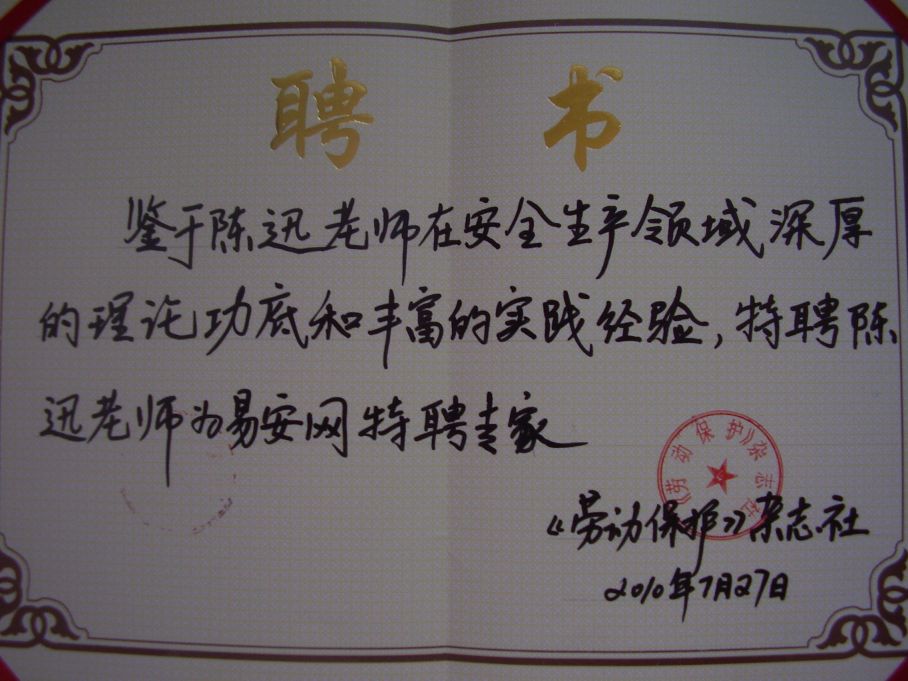 聘 书
鉴于陈迅老师在安全生产领域深厚
的理论功底和丰富的实践经验，特聘陈
迅老师为易安网特聘专家
《劳动保护》杂志社
《劳动保护》杂志社
2010年7月27日